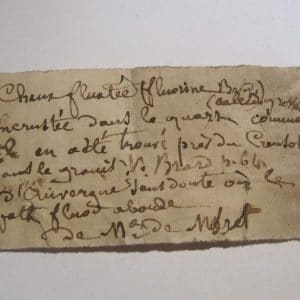 Chaux fluatée fluorine
incrustée dans le quartz comme
il en a été trouvé près du
dans le granit V. Brard p. 64
d'Auvergne sans doute où le
spath fluor abonde
de Mr de